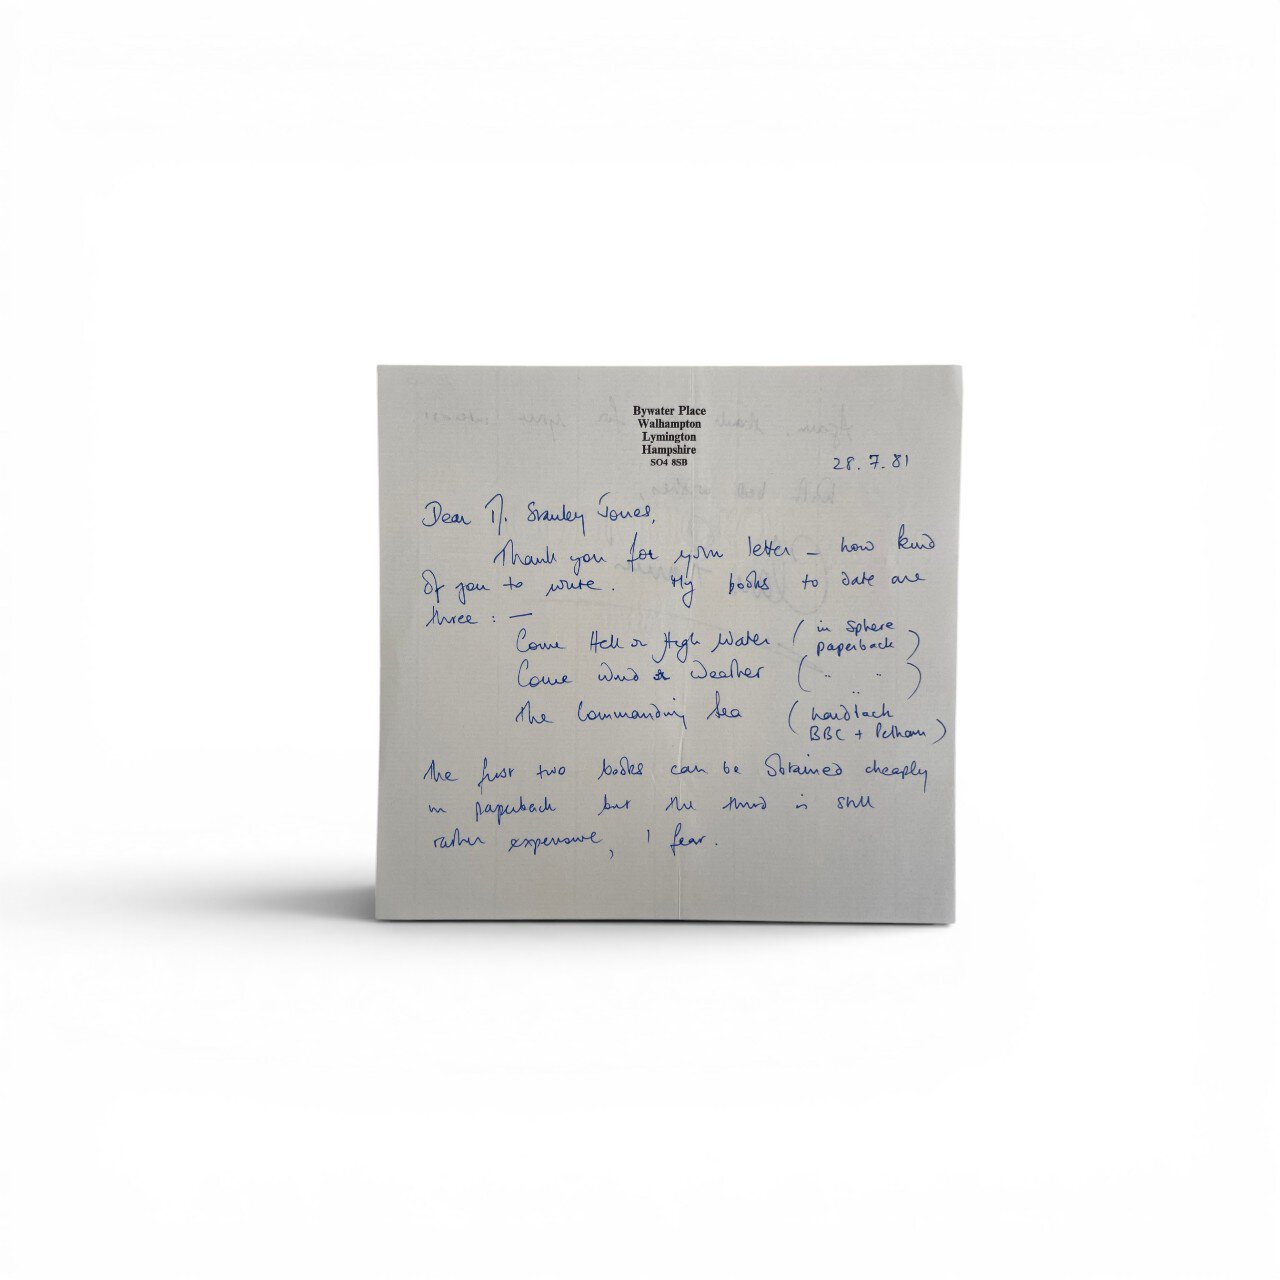 Bywater Place
Walhampton
Lymington
Hampshire
SO4 8SB
28.7.81
Dear Stanley Jones,
Thank you for your letter – how kind
of you to write. My books to date are
three : —
Come Hell or High Water (in Sphere
paperback)
Come Wind or Weather ( " " " )
The Commanding Sea (hardback
BBC + Pelham)
The first two books can be obtained cheaply
in paperback but the third is still
rather expensive, I fear.